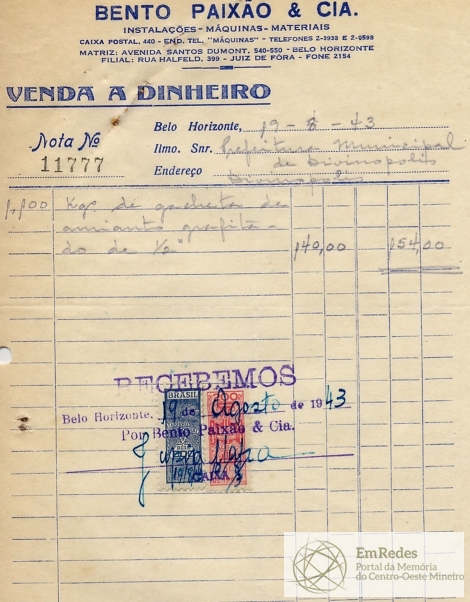 BENTO PAIXÃO & CIA.
INSTALAÇÕES - MÁQUINAS - MATERIAIS
CAIXA POSTAL, 440 - END. TEL. "MÁQUINAS" - TELEFONES 2-1938 E 2-0598
MATRIZ: AVENIDA SANTOS DUMONT, 540-550 - BELO HORIZONTE
FILIAL: RUA HALFELD, 399 - JUIZ DE FÓRA - FONE 2154
VENDA A DINHEIRO
Belo Horizonte, 19 - 8 - 43
Nota Nº 11777
Ilmo. Snr. Prefeitura Municipal
de Divinopolis
Endereço Divinopolis
1,100 Kgs. de gacheta de
amianto grafita-
do de 1/2" 140,00 154,00
RECEBEMOS
BRASIL
Belo Horizonte, 19 de Agosto de 1943
Por Bento Paixão & Cia.
CAIXA
EmRedes
Portal da Memória
do Centro-Oeste Mineiro